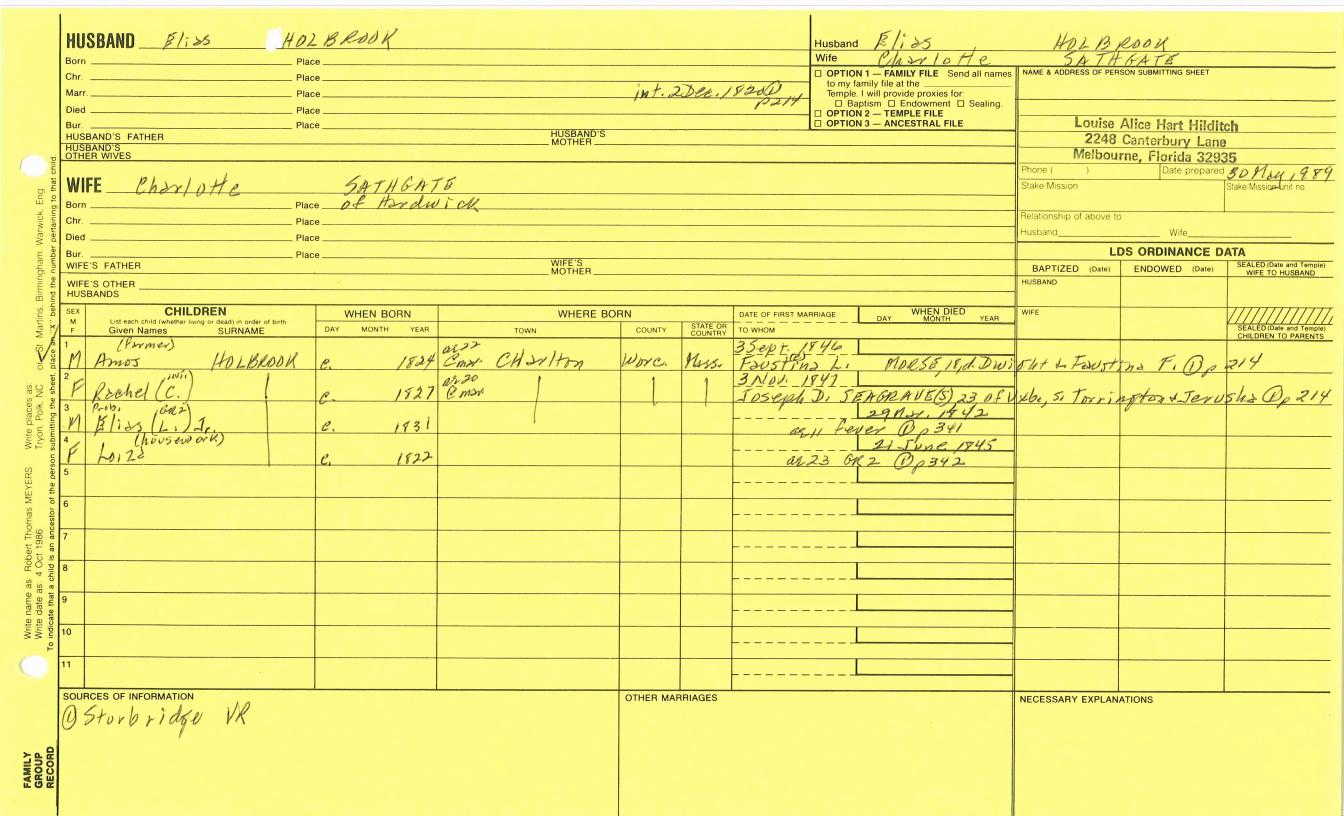 HUSBAND Elias HOLBROOK
Born Place
Chr. Place
Marr. Place int. 2 Dec. 1820 ① p214
Died Place
Bur. Place
HUSBAND'S FATHER HUSBAND'S MOTHER
HUSBAND'S OTHER WIVES
Husband Elias HOLBROOK
Wife Charlotte SATHGATE
☐ OPTION 1 — FAMILY FILE Send all names
to my family file at the
Temple. I will provide proxies for:
☐ Baptism ☐ Endowment ☐ Sealing.
☐ OPTION 2 — TEMPLE FILE
☐ OPTION 3 — ANCESTRAL FILE
NAME & ADDRESS OF PERSON SUBMITTING SHEET
Louise Alice Hart Hilditch
2248 Canterbury Lane
Melbourne, Florida 32935
Phone ( ) Date prepared 30 May, 989
Stake Mission Stake Mission unit no.
Relationship of above to
Husband Wife
WIFE Charlotte SATHGATE
Born Place of Hardwick
Chr. Place
Died Place
Bur. Place
WIFE'S FATHER WIFE'S MOTHER
WIFE'S OTHER HUSBANDS
LDS ORDINANCE DATA
BAPTIZED (Date) ENDOWED (Date) SEALED (Date and Temple) WIFE TO HUSBAND
HUSBAND
WIFE
SEALED (Date and Temple) CHILDREN TO PARENTS
SEX M F
CHILDREN
List each child (whether living or dead) in order of birth
Given Names SURNAME
WHEN BORN
DAY MONTH YEAR
WHERE BORN
TOWN COUNTY STATE OR COUNTRY
DATE OF FIRST MARRIAGE
TO WHOM
WHEN DIED
DAY MONTH YEAR
1 (farmer) ae 22 3 Sept. 1846
M Amos HOLBROOK c. 1824 @mar. Charlton Worc. Mass. Faustina L. MORSE, 18, d. Dwight & Faustina F. ① p 214
2 (int.) ae 20 3 Nov. 1847
F Rachel (C.) c. 1827 @mar Joseph D. SEAGRAVE(S) 23 of Uxb., s. Torrington & Jerusha ① p 214
3 Prob. GR2 29 Mar. 1842
M Elias (L.) Jr. c. 1831 ae 11 fever ① p 341
4 (housework) 21 June 1845
F Loiza c. 1822 ae 23 GR2 ① p 342
5
6
7
8
9
10
11
SOURCES OF INFORMATION
① Sturbridge VR
OTHER MARRIAGES
NECESSARY EXPLANATIONS
FAMILY GROUP RECORD
Write name as: Robert Thomas MEYERS
Write date as: 4 Oct 1986
Write places as: Tryon, Polk, NC or St Martins, Birmingham, Warwick, Eng
To indicate that a child is an ancestor of the person submitting the sheet, place an "X" behind the number pertaining to that child.